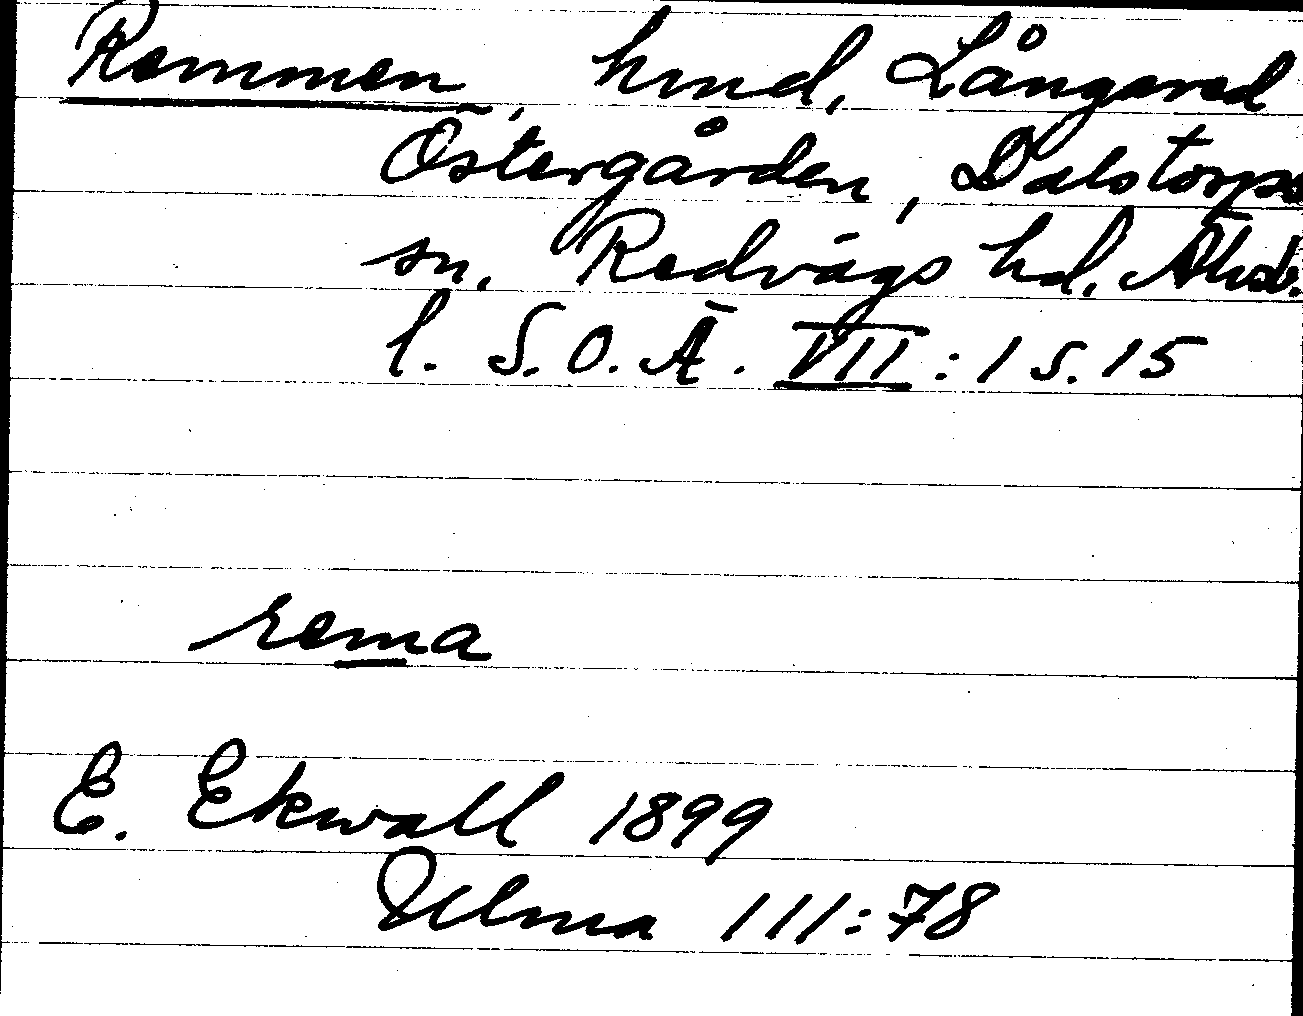 Remmen, hmd, Långared
Östergården, Dalstorps
sn, Redvägs hd, Älvsb.
l. S.O.Ä. VII:1 s. 15
rema
E. Ekwall 1899
Ulma 111:78